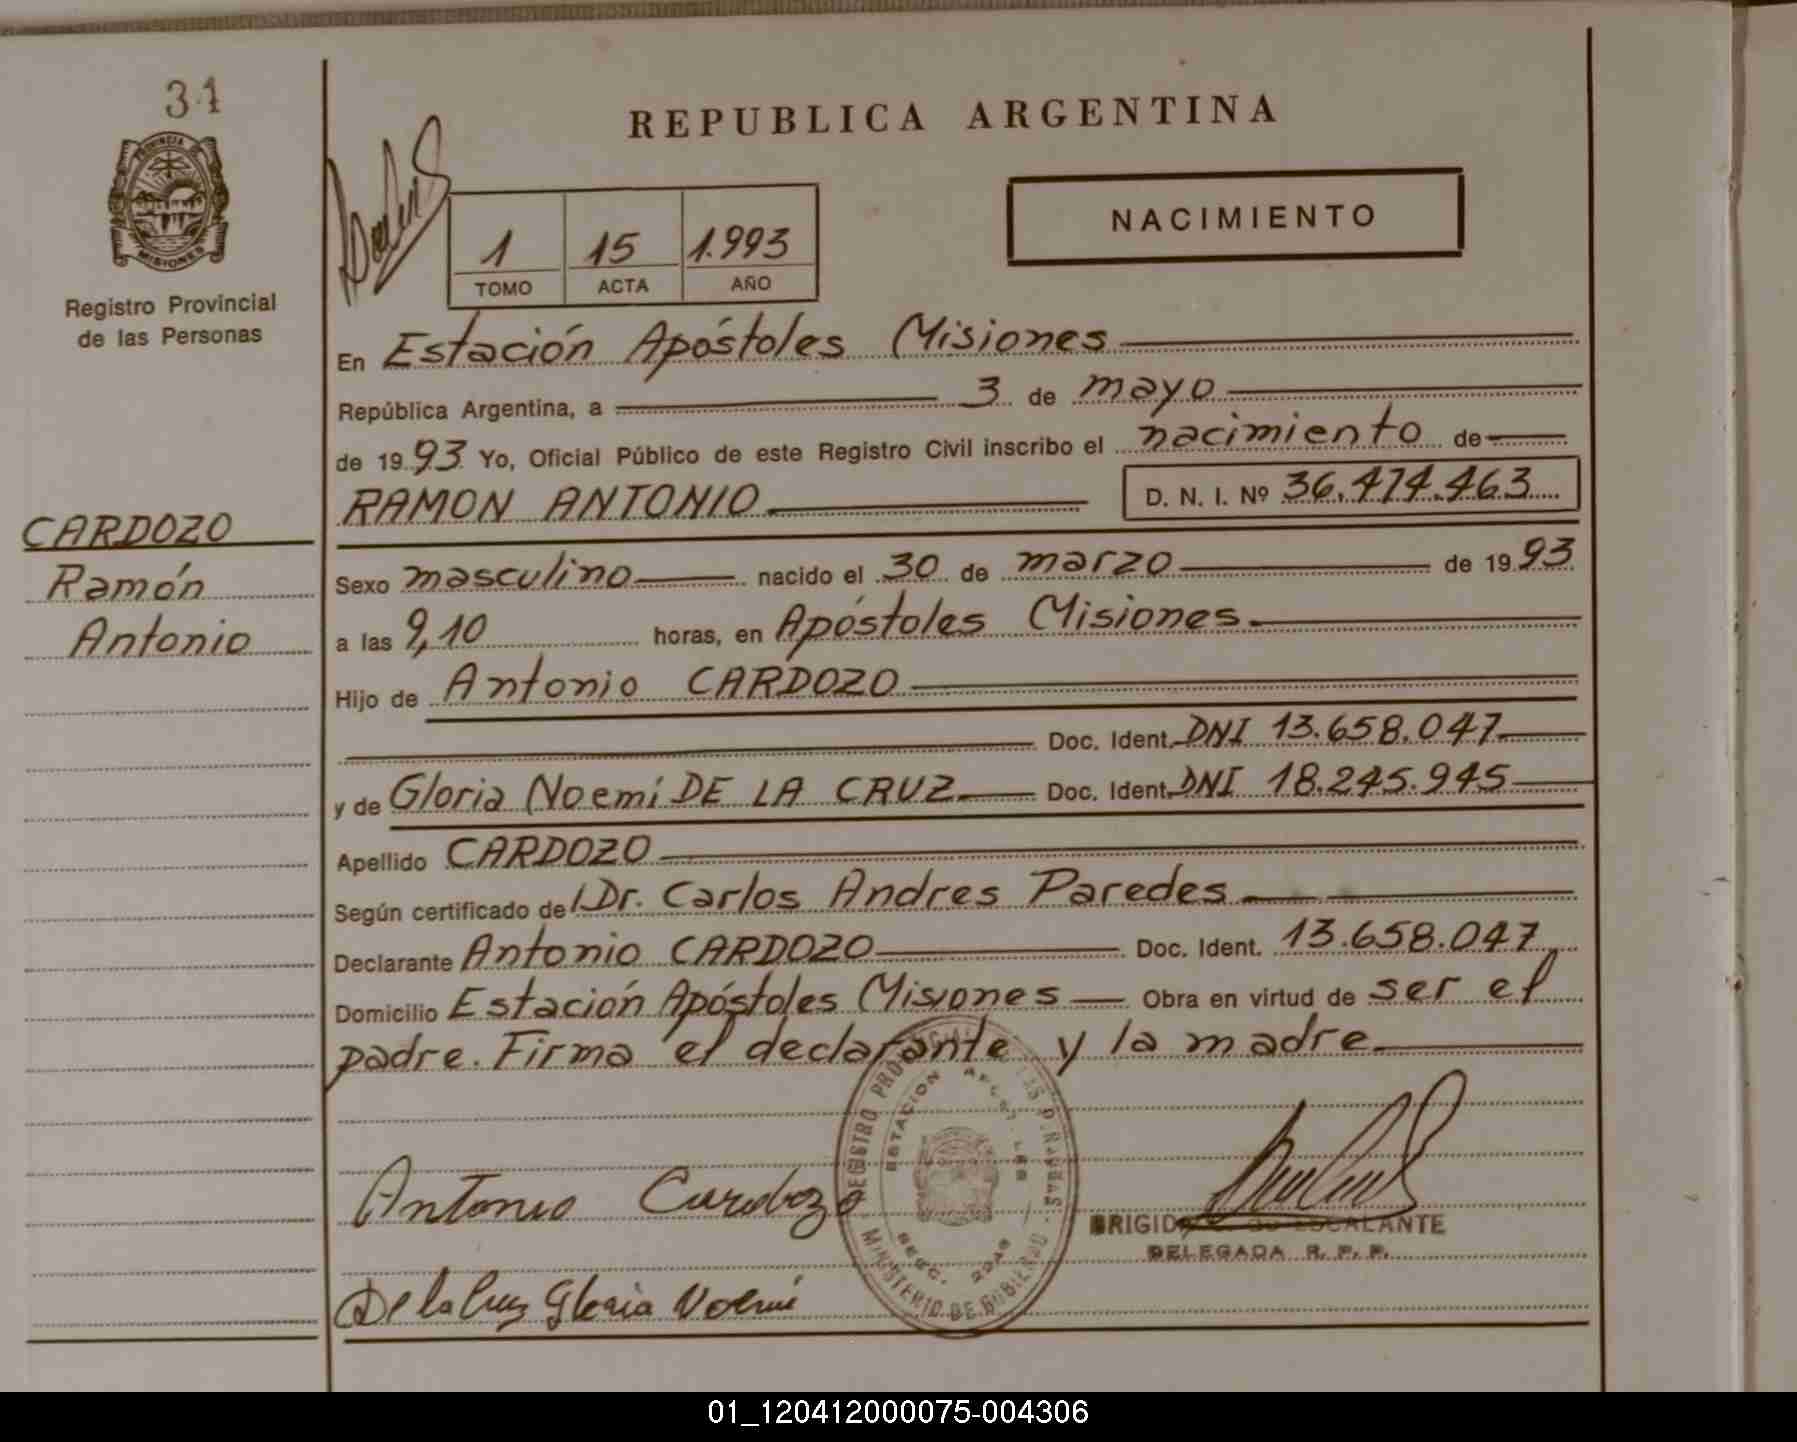 31
PROVINCIA DE
MISIONES
Registro Provincial
de las Personas
CARDOZO
Ramón
Antonio
REPUBLICA ARGENTINA
NACIMIENTO
1 15 1.993
TOMO ACTA AÑO
En Estación Apóstoles Misiones
República Argentina, a 3 de mayo
de 1993 Yo, Oficial Público de este Registro Civil inscribo el nacimiento de
RAMON ANTONIO D. N. I. Nº 36.474.463
Sexo masculino nacido el 30 de marzo de 1993
a las 9,10 horas, en Apóstoles Misiones.
Hijo de Antonio CARDOZO
Doc. Ident. DNI 13.658.047
y de Gloria Noemí DE LA CRUZ Doc. Ident. DNI 18.245.945
Apellido CARDOZO
Según certificado del Dr. Carlos Andres Paredes
Declarante Antonio CARDOZO Doc. Ident. 13.658.047
Domicilio Estación Apóstoles Misiones Obra en virtud de ser el
padre. Firma el declarante y la madre.
Antonio Cardozo
De la Cruz Gloria Noemí
REGISTRO PROVINCIAL DE LAS PERSONAS
ESTACION APOSTOLES
SECC.
MINISTERIO DE GOBIERNO
ESCALANTE
DELEGADA R. P. P.
01_120412000075-004306